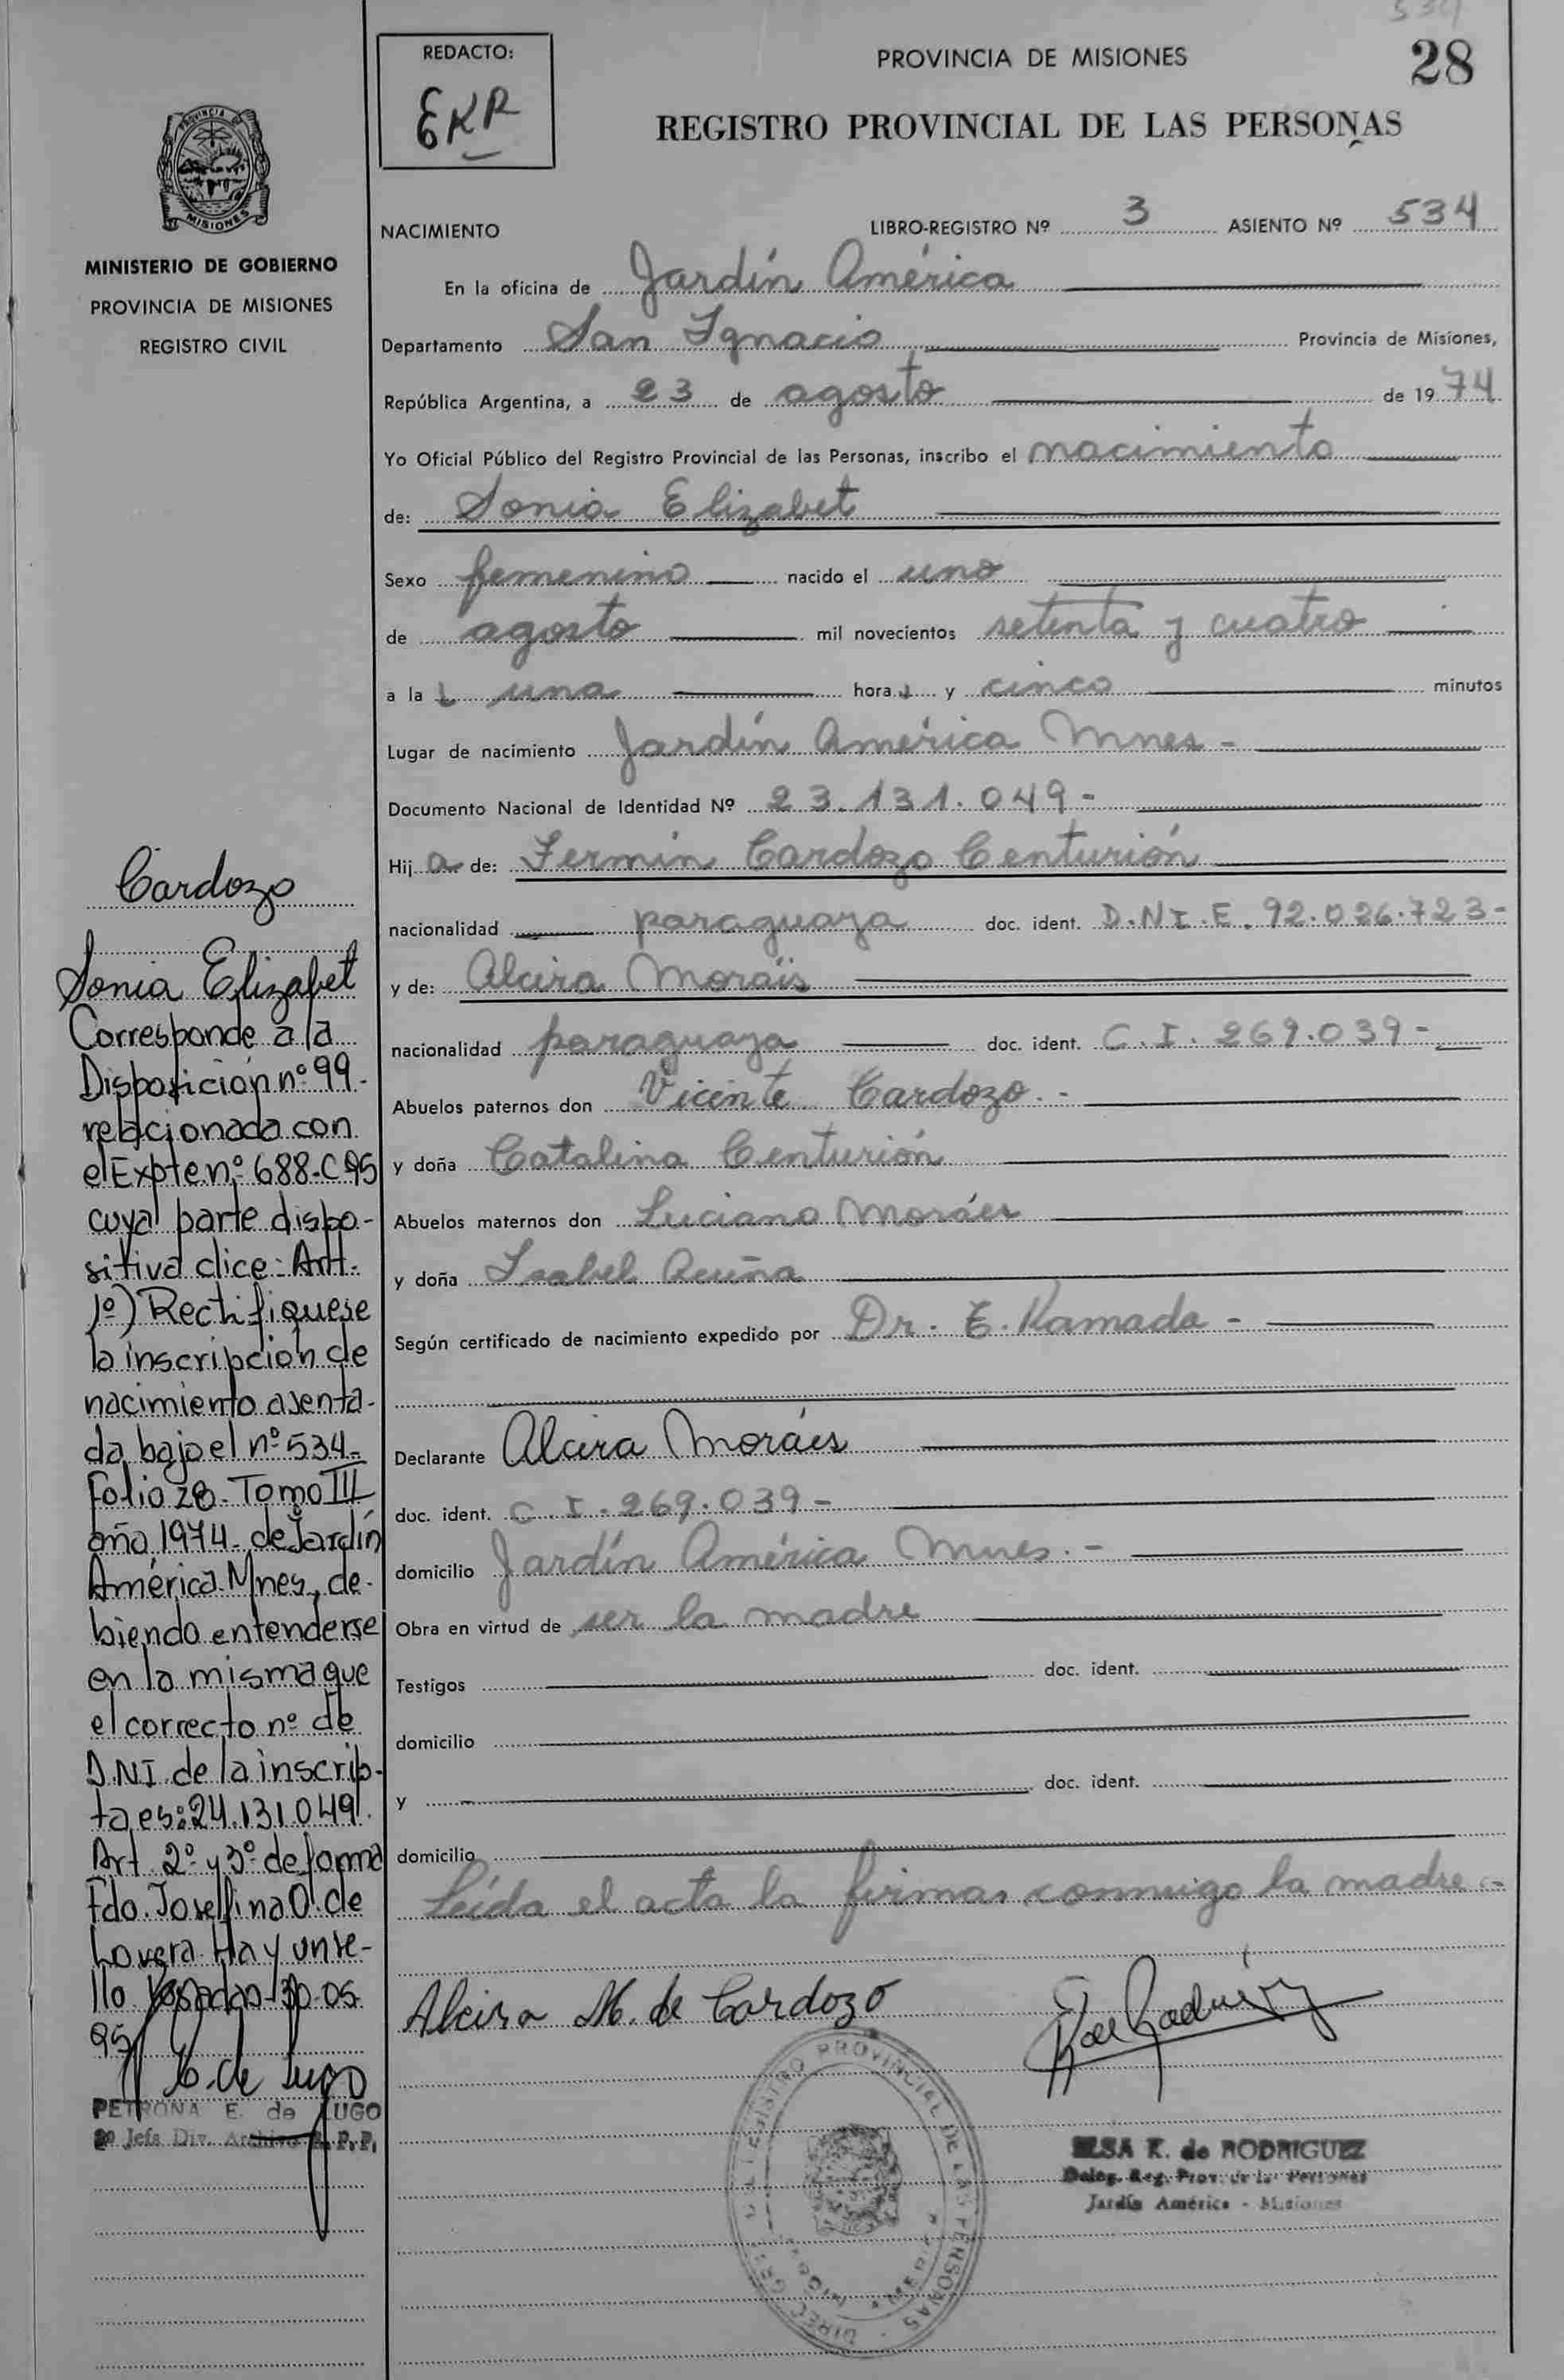 534
28
REDACTO:
EKR
PROVINCIA DE MISIONES
REGISTRO PROVINCIAL DE LAS PERSONAS
PROVINCIA D
MISIONES
MINISTERIO DE GOBIERNO
PROVINCIA DE MISIONES
REGISTRO CIVIL
NACIMIENTO LIBRO-REGISTRO Nº 3 ASIENTO Nº 534
En la oficina de Jardín América
Departamento San Ignacio Provincia de Misiones,
República Argentina, a 23 de agosto de 1974
Yo Oficial Público del Registro Provincial de las Personas, inscribo el nacimiento
de: Sonia Elizabet
Sexo femenino nacido el uno
de agosto mil novecientos setenta y cuatro
a la una hora y cinco minutos
Lugar de nacimiento Jardín América Mnes -
Documento Nacional de Identidad Nº 23.131.049 -
Hij a de: Fermín Cardozo Centurión
nacionalidad paraguaya doc. ident. D.N.I.E. 92.026.723 -
y de: Alcira Moráis
nacionalidad paraguaya doc. ident. C.I. 269.039 -
Abuelos paternos don Vicente Cardozo. -
y doña Catalina Centurión
Abuelos maternos don Luciano Moráes
y doña Isabel Acuña
Según certificado de nacimiento expedido por Dr. E. Kamada -
Declarante Alcira Moráes
doc. ident. C.I. 269.039 -
domicilio Jardín América Mnes. -
Obra en virtud de ser la madre
Testigos doc. ident.
domicilio
y doc. ident.
domicilio
Leída el acta la firman conmigo la madre -
Alcira M. de Cardozo
REGISTRO PROVINCIAL DE LAS PERSONAS
ELSA K. de RODRIGUEZ
Deleg. Reg. Prov. de las Personas
Jardín América - Misiones
Cardozo
Sonia Elizabet
Corresponde a la
Disposición nº 99-
relacionada con
el Expte nº 688-C-95
cuya parte dispo-
sitiva dice: Art.
1º) Rectifiquese
la inscripción de
nacimiento asenta-
da bajo el nº 534-
Folio 28- Tomo III
año 1974- de Jardín
América Mnes, de-
biendo entenderse
en la misma que
el correcto nº de
D.NI. de la inscrip-
ta es: 24.131.049.
Art 2º y 3º de forma
Fdo. Josefina O. de
Lovera. Hay un se-
llo Posadas 30-05-
95
E. de Lugo
PETRONA E. de LUGO
2º Jefa Div. Archivo R.P.P.